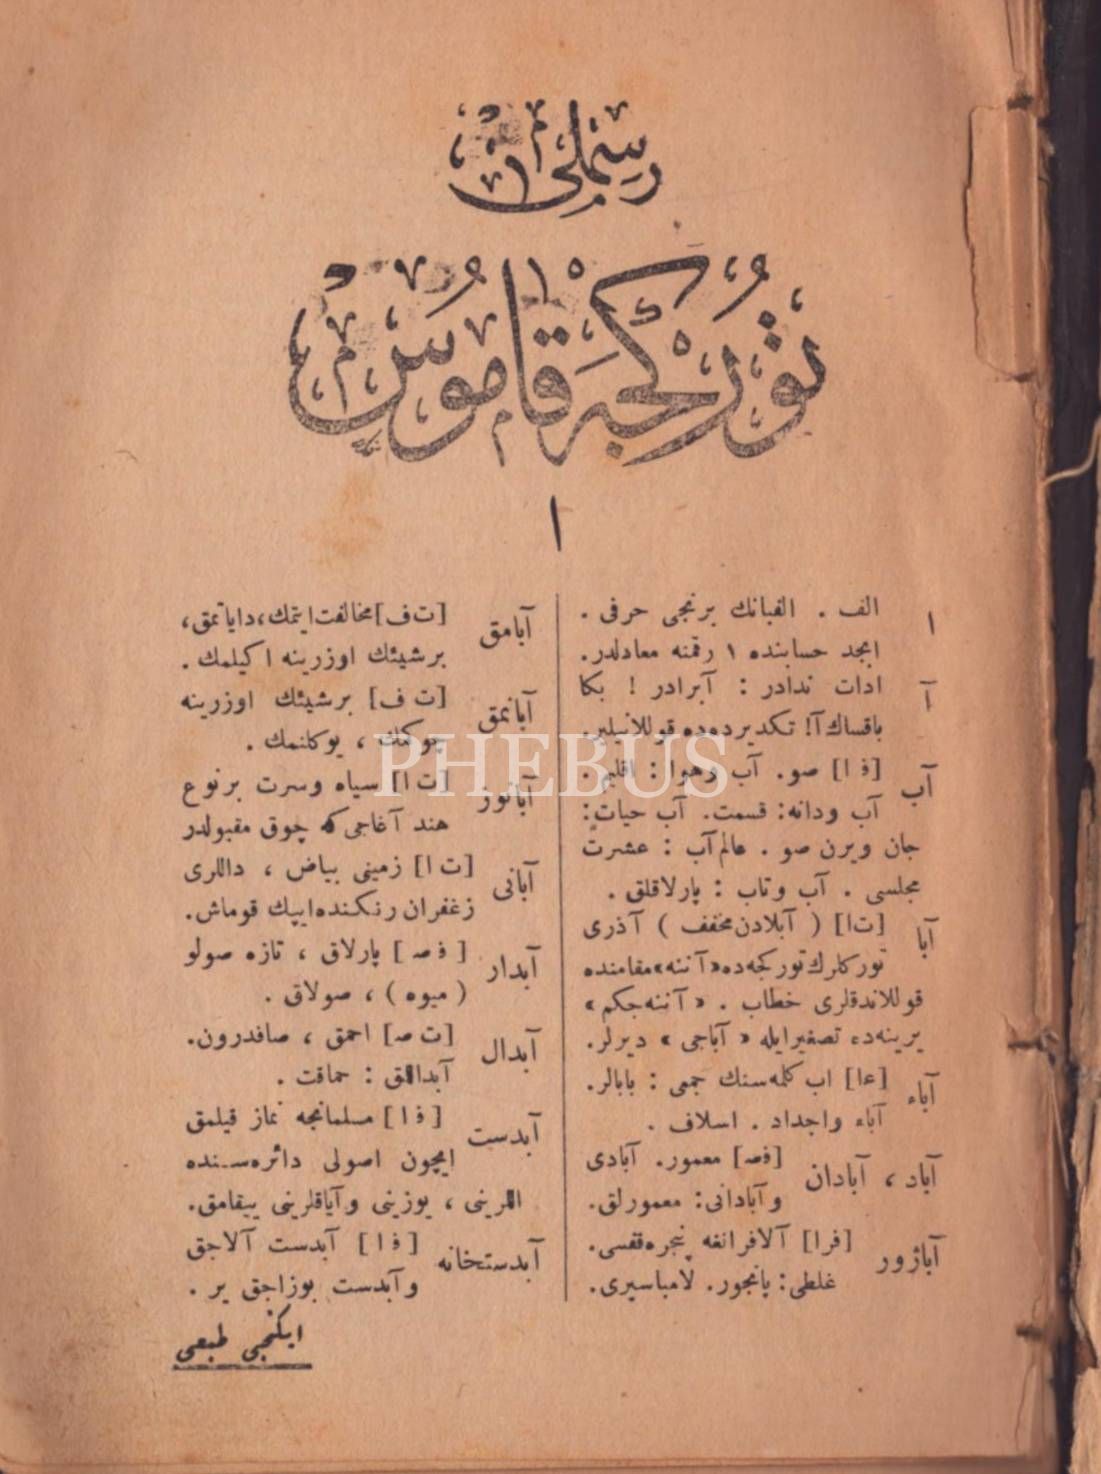 رسملی
تورکجه قاموس
ا
ا الف . الفبانك برنجی حرفی .
ابجد حسابنده ١ رقمنه معادلدر.
آ ادات ندادر : آبرادر ! بكا
باقساك آ! تكدیرده‌ده قوللانیلیر.
آب [ف ا] صو. آب وهوا : اقلیم .
آب ودانه: قسمت. آب حیات:
جان ویرن صو . عالم آب : عشرت
مجلسی . آب وتاب : پارلاقلق .
آبا [ت ا] ( آبلادن مخفف ) آذری
تورکلرك تورکجه‌ده «آننه» مقامنده
قوللاندقلری خطاب . « آننه‌جكم »
یرینه‌ده تصغیرایله « آباجی » دیرلر.
آباء [ع ا] اب كلمه‌سنك جمعی : بابالر.
آباء واجداد . اسلاف .
آباد ، آبادان [ف ص] معمور. آبادی
وآبادانی: معمورلق.
آباژور [فر ا] آلافرانغه پنجره قفسی.
غلطی: پانجور. لامباسپری.
آبامق [ت ف] مخالفت ایتمك، دایاتمق،
برشیئك اوزرینه اكیلمك .
آبانمق [ت ف] برشیئك اوزرینه
چوكمك ، یوكلنمك .
آبانوز [ت ا] سیاه وسرت برنوع
هند آغاجی كه چوق مقبولدر
آبانی [ت ا] زمینی بیاض ، داللری
زغفران رنكنده ایپك قوماش.
آبدار [ف ص] پارلاق ، تازه صولو
( میوه ) ، صولاق .
آبدال [ت ص] احمق ، صافدرون.
آبداللق : حماقت .
آبدست [ف ا] مسلمانجه نماز قیلمق
ایچون اصولی دائره‌سنده
اللرینی ، یوزینی وآیاقلرینی ییقامق.
آبدستخانه [ف ا] آبدست آلاجق
وآبدست بوزاجق یر .
ایكنجی طبعی
PHEBUS